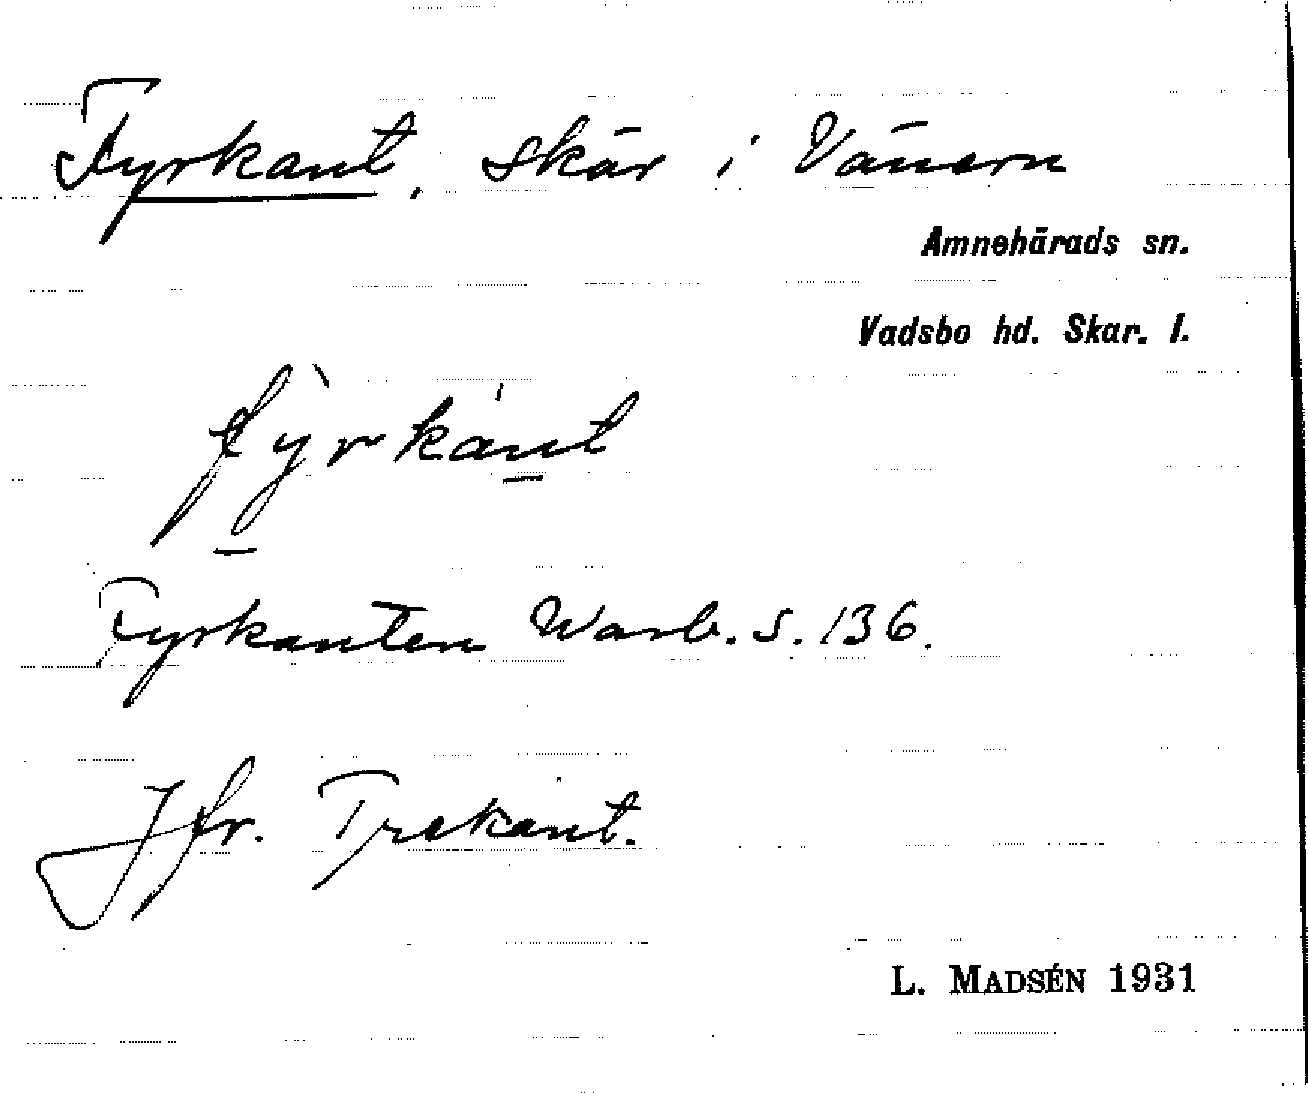 Fyrkant, skär i Vänern
Amnehärads sn.
Vadsbo hd. Skar. l.
fỳ̠rkán̠t
Fyrkanten Warb. s. 136.
Jfr. Trekant.
L. MADSÉN 1931